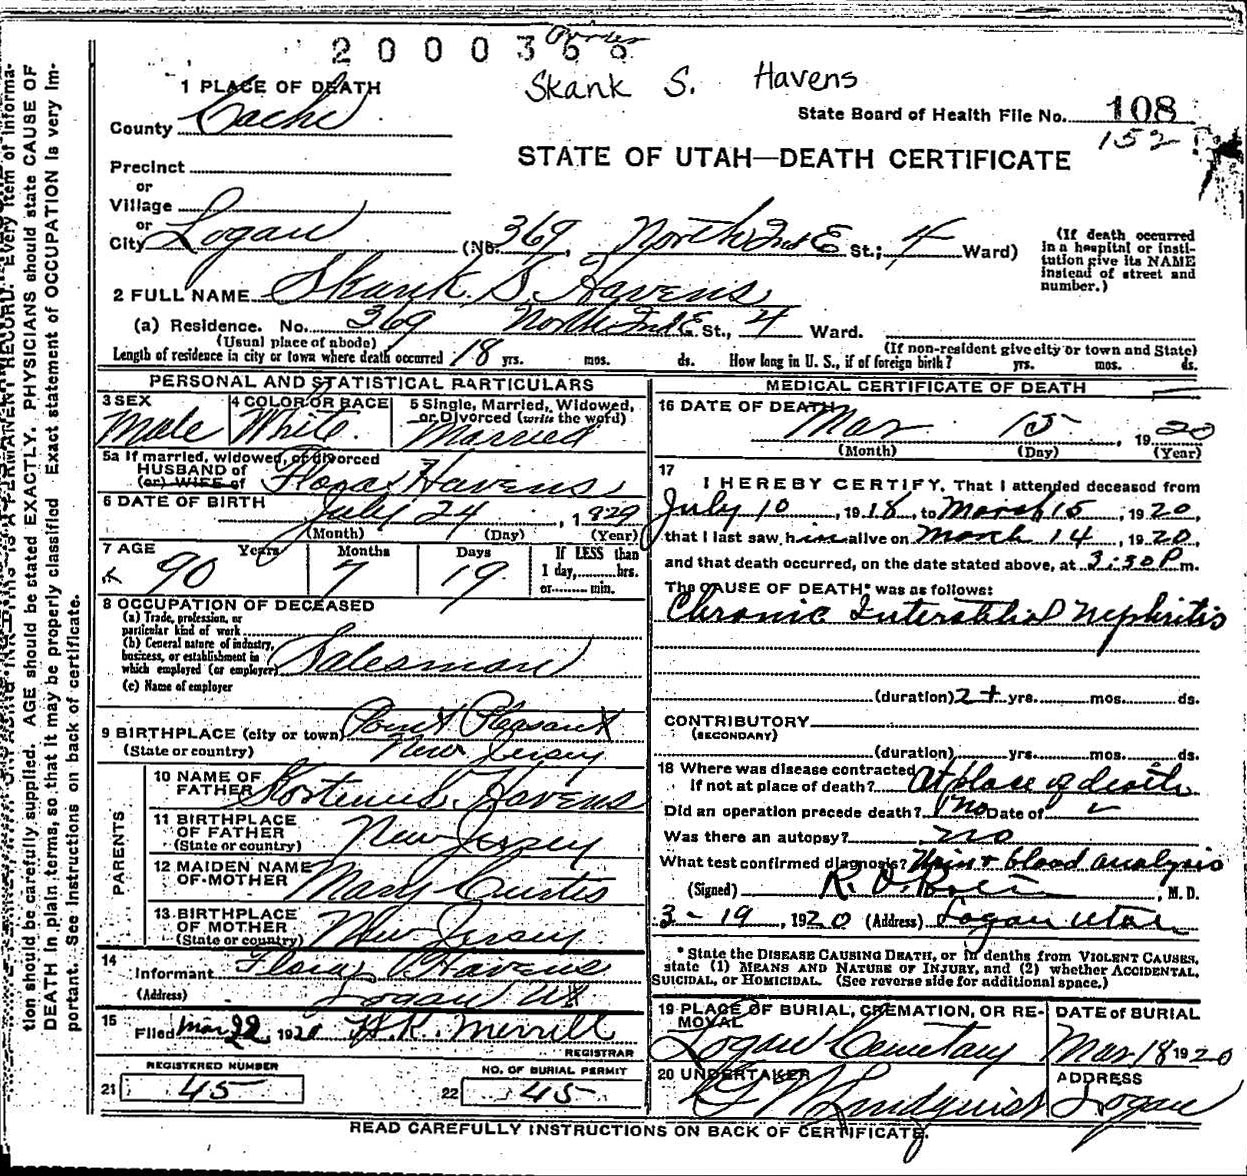 2000366
Skank S. Havens
1 PLACE OF DEATH
State Board of Health File No. 108
County Cache
152
STATE OF UTAH—DEATH CERTIFICATE
Precinct
or
Village
or
City Logan (No. 369, North 2nd E St.; 4 Ward)
(If death occurred in a hospital or institution give its NAME instead of street and number.)
2 FULL NAME Skank S. Havens
(a) Residence. No. 369 North 2nd E. St., 4 Ward.
(Usual place of abode) (If non-resident give city or town and State)
Length of residence in city or town where death occurred 18 yrs. mos. ds. How long in U. S., if of foreign birth? yrs. mos. ds.
PERSONAL AND STATISTICAL PARTICULARS
3 SEX Male
4 COLOR OR RACE White.
5 Single, Married, Widowed, or Divorced (write the word) Married
5a If married, widowed, or divorced
HUSBAND of
(or) WIFE of Havens
6 DATE OF BIRTH July 24, 1829
(Month) (Day) (Year)
7 AGE Years Months Days If LESS than
90 7 19 1 day,........hrs.
or........min.
8 OCCUPATION OF DECEASED
(a) Trade, profession, or
particular kind of work
(b) General nature of industry,
business, or establishment in
which employed (or employer) Salesman
(c) Name of employer
9 BIRTHPLACE (city or town) Point Pleasant
(State or country) New Jersey
PARENTS
10 NAME OF
FATHER Havens
11 BIRTHPLACE
OF FATHER
(State or country) New Jersey
12 MAIDEN NAME
OF MOTHER Mary Curtis
13 BIRTHPLACE
OF MOTHER
(State or country) New Jersey
14
Informant Havens
(Address) Logan Ut
15 Filed Mar 22, 1920 H.K. Merrill
REGISTRAR
REGISTERED NUMBER
21 45
NO. OF BURIAL PERMIT
22 45
MEDICAL CERTIFICATE OF DEATH
16 DATE OF DEATH
Mar 15, 1920
(Month) (Day) (Year)
17
I HEREBY CERTIFY, That I attended deceased from
July 10, 1918, to March 15, 1920,
that I last saw him alive on March 14, 1920,
and that death occurred, on the date stated above, at 3:30 P m.
The CAUSE OF DEATH* was as follows:
Chronic Interstitial Nephritis
(duration) 2+ yrs. mos. ds.
CONTRIBUTORY
(SECONDARY)
(duration) yrs. mos. ds.
18 Where was disease contracted
If not at place of death? At place of death
Did an operation precede death? no Date of
Was there an autopsy? no
What test confirmed diagnosis? Urine + blood analysis
(Signed) R. O. , M. D.
3-19, 1920 (Address) Logan Utah
*State the DISEASE CAUSING DEATH, or in deaths from VIOLENT CAUSES,
state (1) MEANS AND NATURE OF INJURY, and (2) whether ACCIDENTAL,
SUICIDAL, or HOMICIDAL. (See reverse side for additional space.)
19 PLACE OF BURIAL, CREMATION, OR RE-
MOVAL
Logan Cemetary
DATE of BURIAL
Mar. 18 1920
20 UNDERTAKER
Lindquist
ADDRESS
Logan
READ CAREFULLY INSTRUCTIONS ON BACK OF CERTIFICATE.
tion should be carefully supplied. AGE should be stated EXACTLY. PHYSICIANS should state CAUSE OF
DEATH in plain terms, so that it may be properly classified. Exact statement of OCCUPATION is very im-
portant. See instructions on back of certificate.